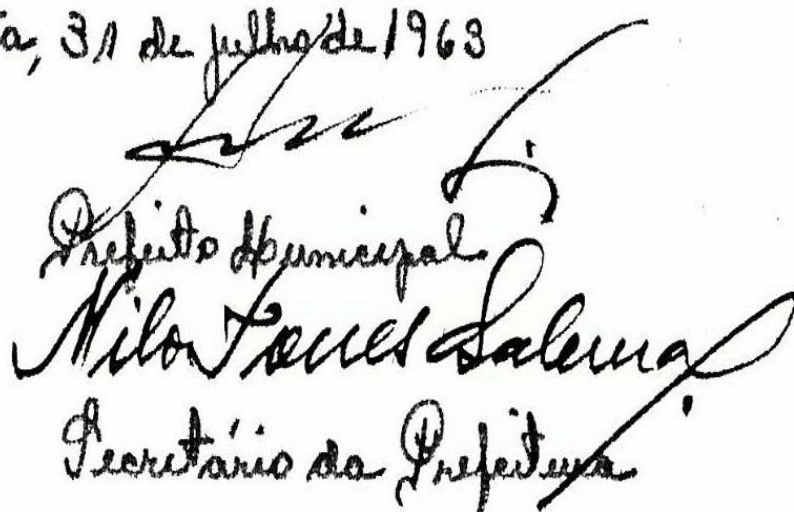 a, 31 de julho de 1963
Prefeito Municipal
Nilo Torres Salema
Secretário da Prefeitura